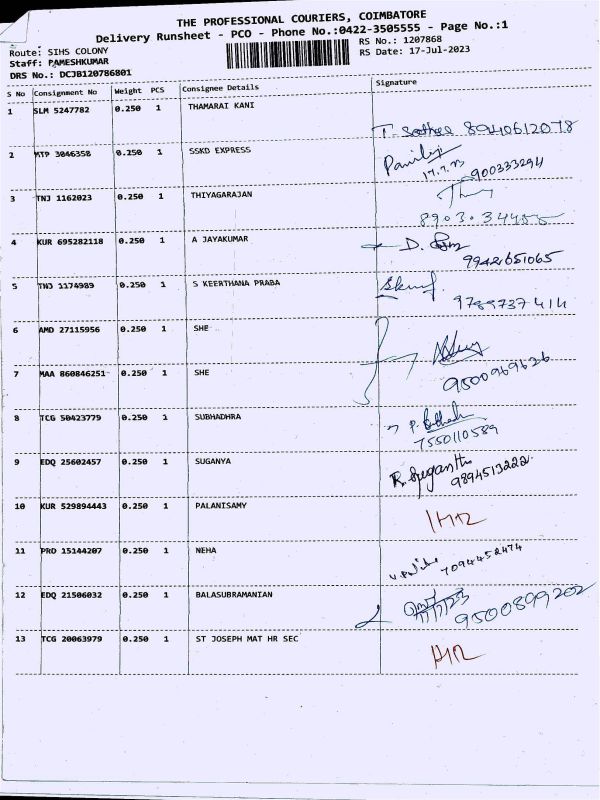 THE PROFESSIONAL COURIERS, COIMBATORE
Delivery Runsheet - PCO - Phone No.:0422-3505555 - Page No.:1
Route: SIHS COLONY
RS No.: 1207868
Staff: RAMESHKUMAR
RS Date: 17-Jul-2023
DRS No.: DCJB120786801
S No Consignment No Weight PCS Consignee Details Signature
1 SLM 5247782 0.250 1 THAMARAI KANI
8940612078
2 MTP 3046358 0.250 1 SSKD EXPRESS
17.7.23 900333294
3 TNJ 1162023 0.250 1 THIYAGARAJAN
8903.34455
4 KUR 695282118 0.250 1 A JAYAKUMAR
D.
9942651065
5 TNJ 1174989 0.250 1 S KEERTHANA PRABA
9789737414
6 AMD 27115956 0.250 1 SHE
7 MAA 860846251 0.250 1 SHE
9500969626
8 TCG 50423779 0.250 1 SUBHADHRA
P.
7550110589
9 EDQ 25602457 0.250 1 SUGANYA
R. Suganthi
9894513222
10 KUR 529894443 0.250 1 PALANISAMY
11 PRD 15144207 0.250 1 NEHA
7094452474
12 EDQ 21506032 0.250 1 BALASUBRAMANIAN
9500899202
13 TCG 20063979 0.250 1 ST JOSEPH MAT HR SEC